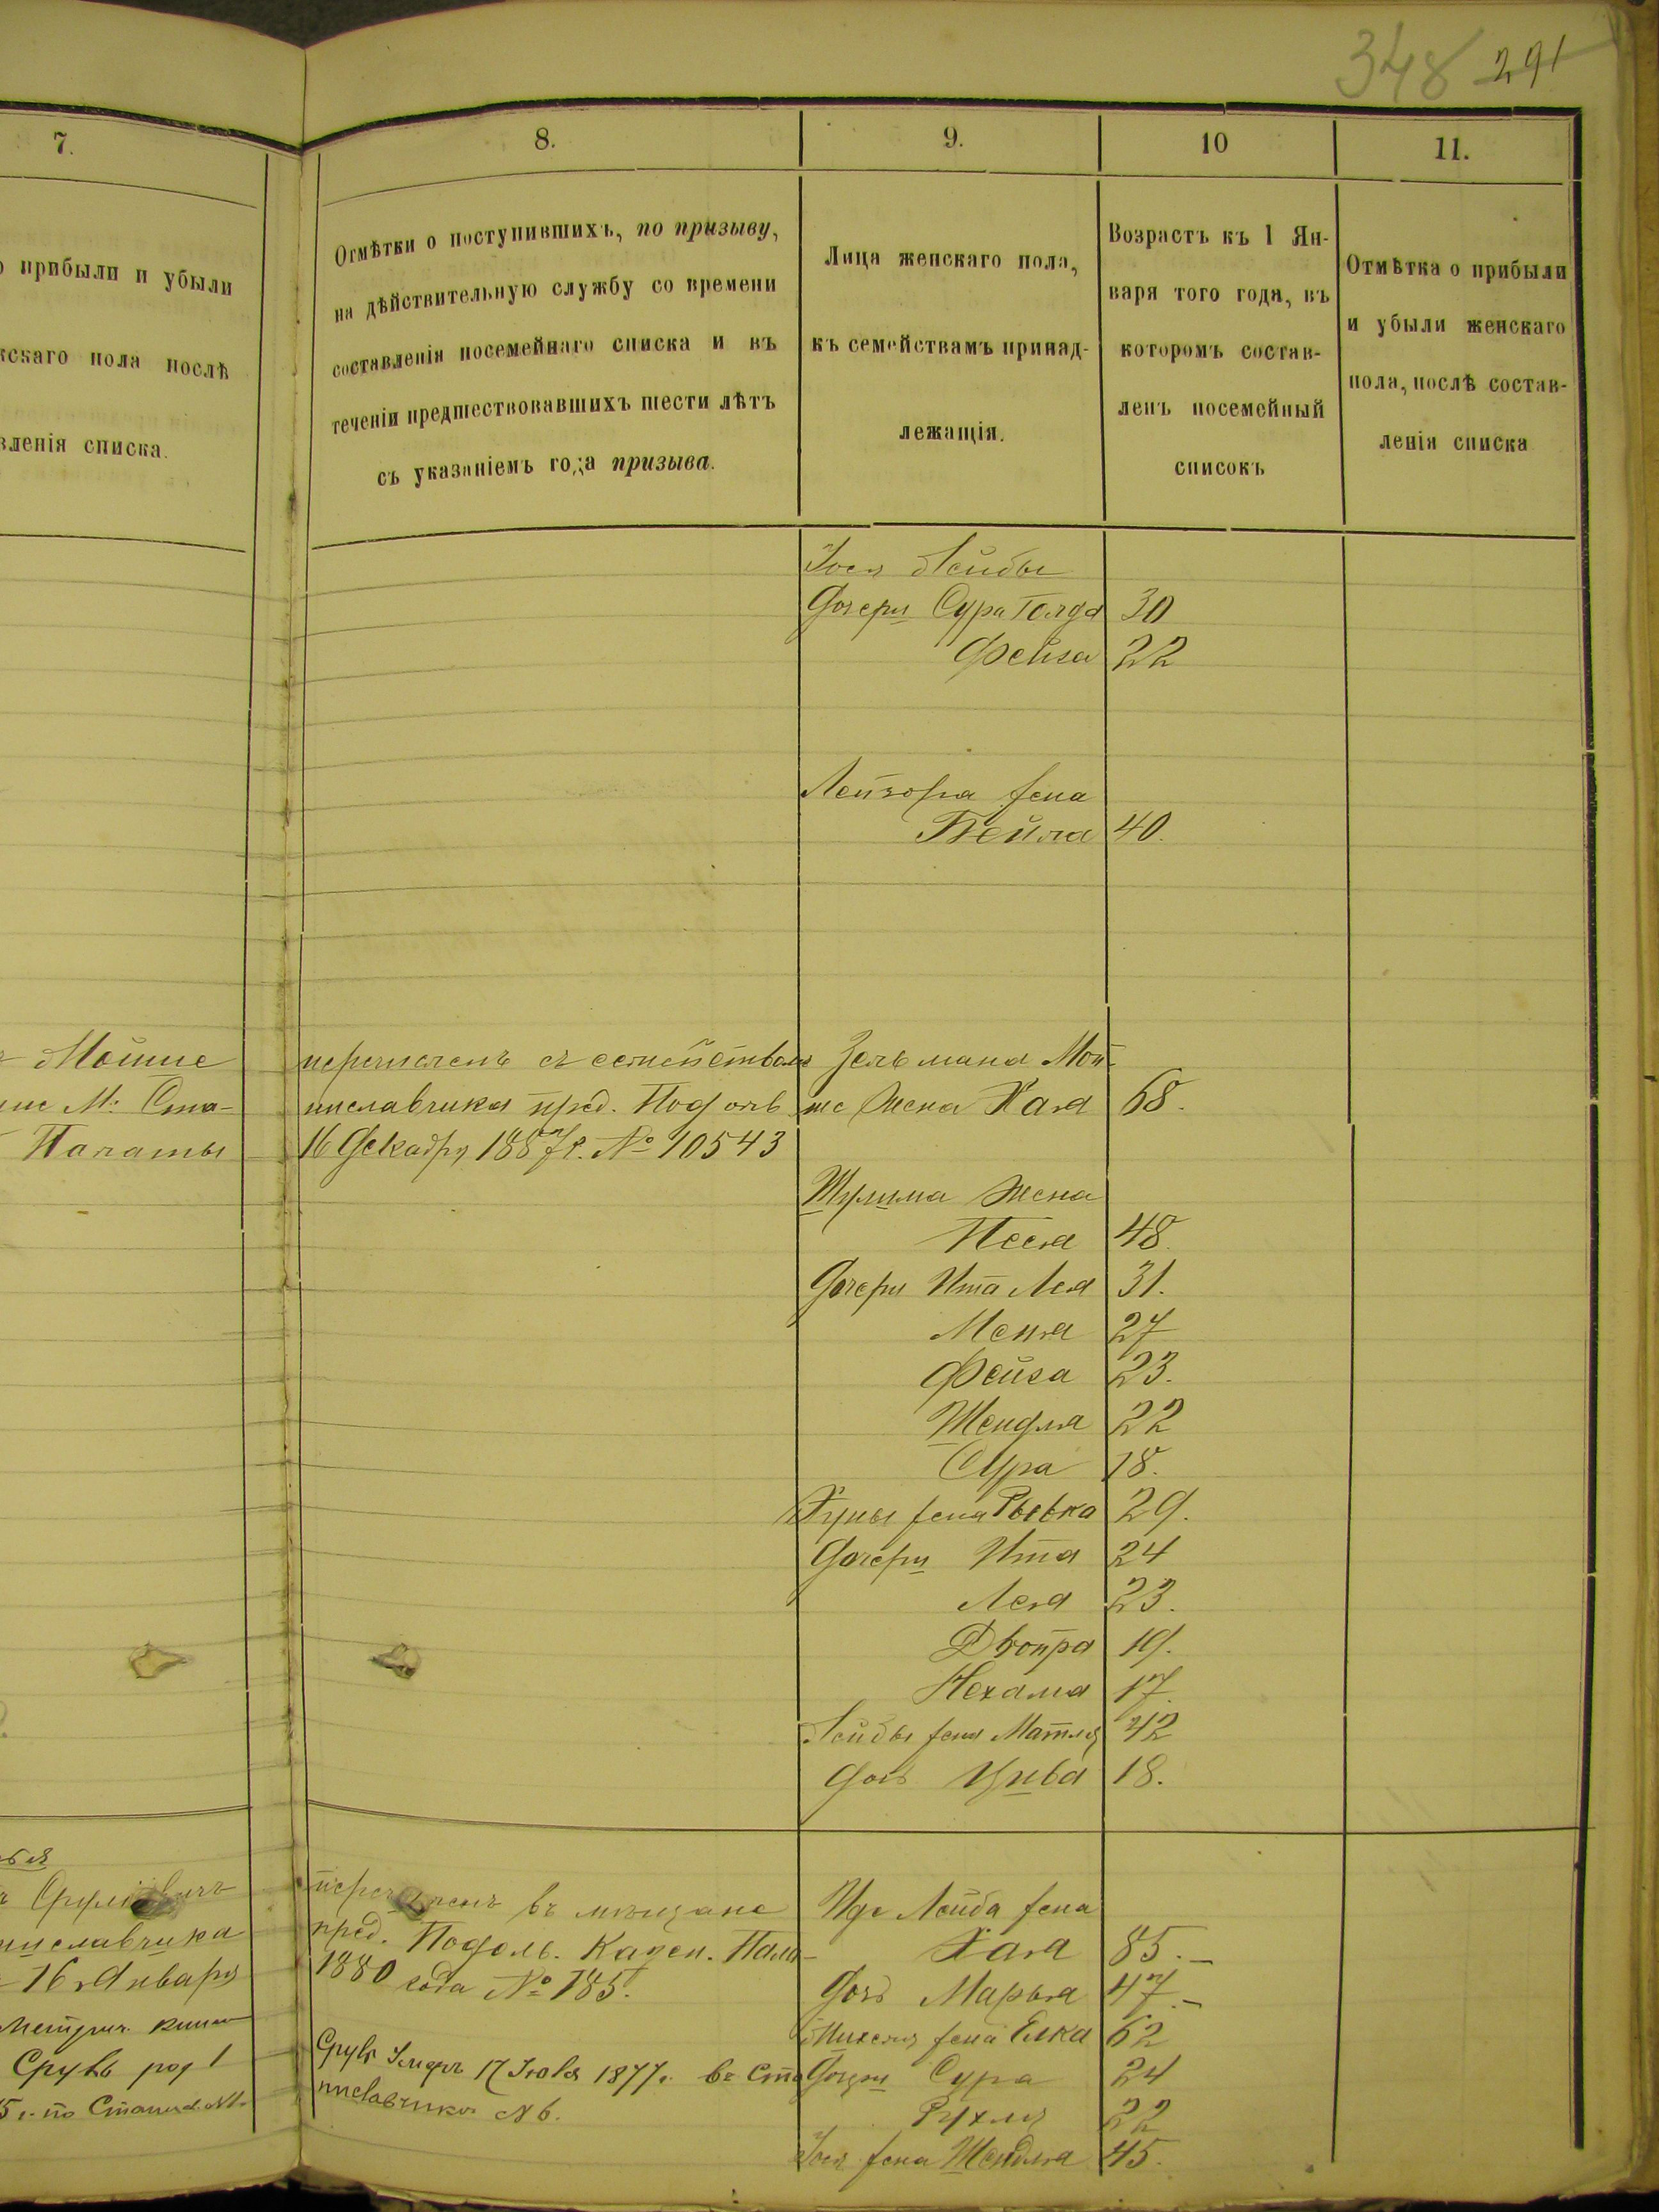 348 291
7.
о прибыли и убыли
жскаго пола послѣ
вленія списка.
Мойше
М: Ста-
Палаты
16 Января
Сруль род
8.
Отмѣтки о поступившихъ, по призыву,
на дѣйствительную службу со времени
составленія посемейнаго списка и въ
теченіи предшествовавшихъ шести лѣтъ
съ указаніемъ года призыва.
перечисленъ съ семействомъ
ниславчика пред. Подольс
16 Декабря 1887 г. № 10543
въ мѣщане
пред. Подоль. Казен. Пала-
1880 года № 185.
Сруль Умеръ 17 Іюля 1877 г. въ Ста
ниславчикѣ № 6.
9.
Лица женскаго пола,
къ семействамъ принад-
лежащія.
Іося Лейбы
Дочери Сура Голда
Фейга
Лейзора жена
Бейла
Зельмана Мой-
ше жена Хая
Шулима жена
Песя
Дочери Ита Лея
Меня
Фейга
Шендля
Сура
Хуны жена Рывка
Дочери Ита
Лея
Двойра
Нехама
Лейбы жена Матля
дочь Цива
Иде Лейба жена
Хая
дочь Марья
Михеля жена Елка
Дочери Сура
Рухля
Іося жена Шендля
10
Возрастъ къ 1 Ян-
варя того года, въ
которомъ состав-
ленъ посемейный
списокъ
30
22
40.
68.
48.
31.
27
23.
22
18.
29.
24
23.
19.
17.
42
18.
85.
47.
62
24
22
45.
11.
Отмѣтка о прибыли
и убыли женскаго
пола, послѣ состав-
ленія списка